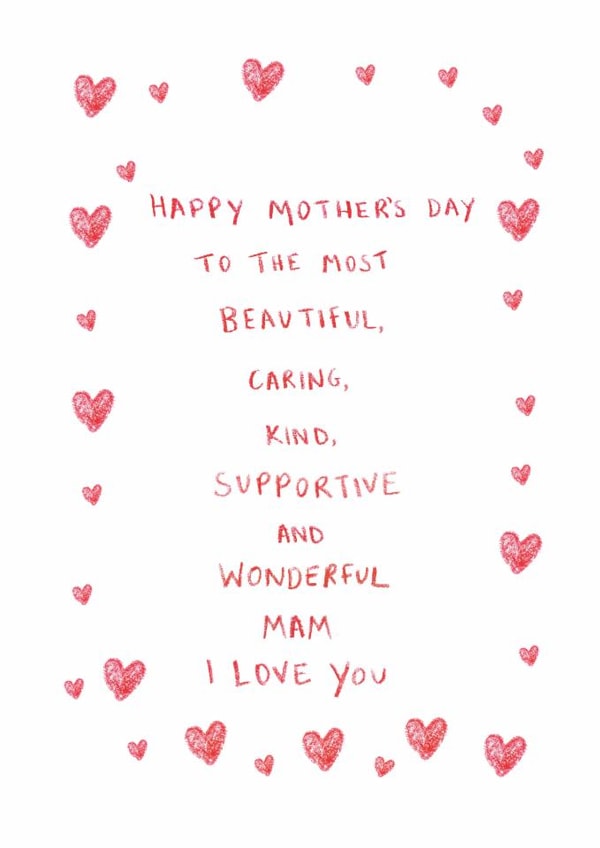 HAPPY MOTHER'S DAY
TO THE MOST
BEAUTIFUL,
CARING,
KIND,
SUPPORTIVE
AND
WONDERFUL
MAM
I LOVE YOU